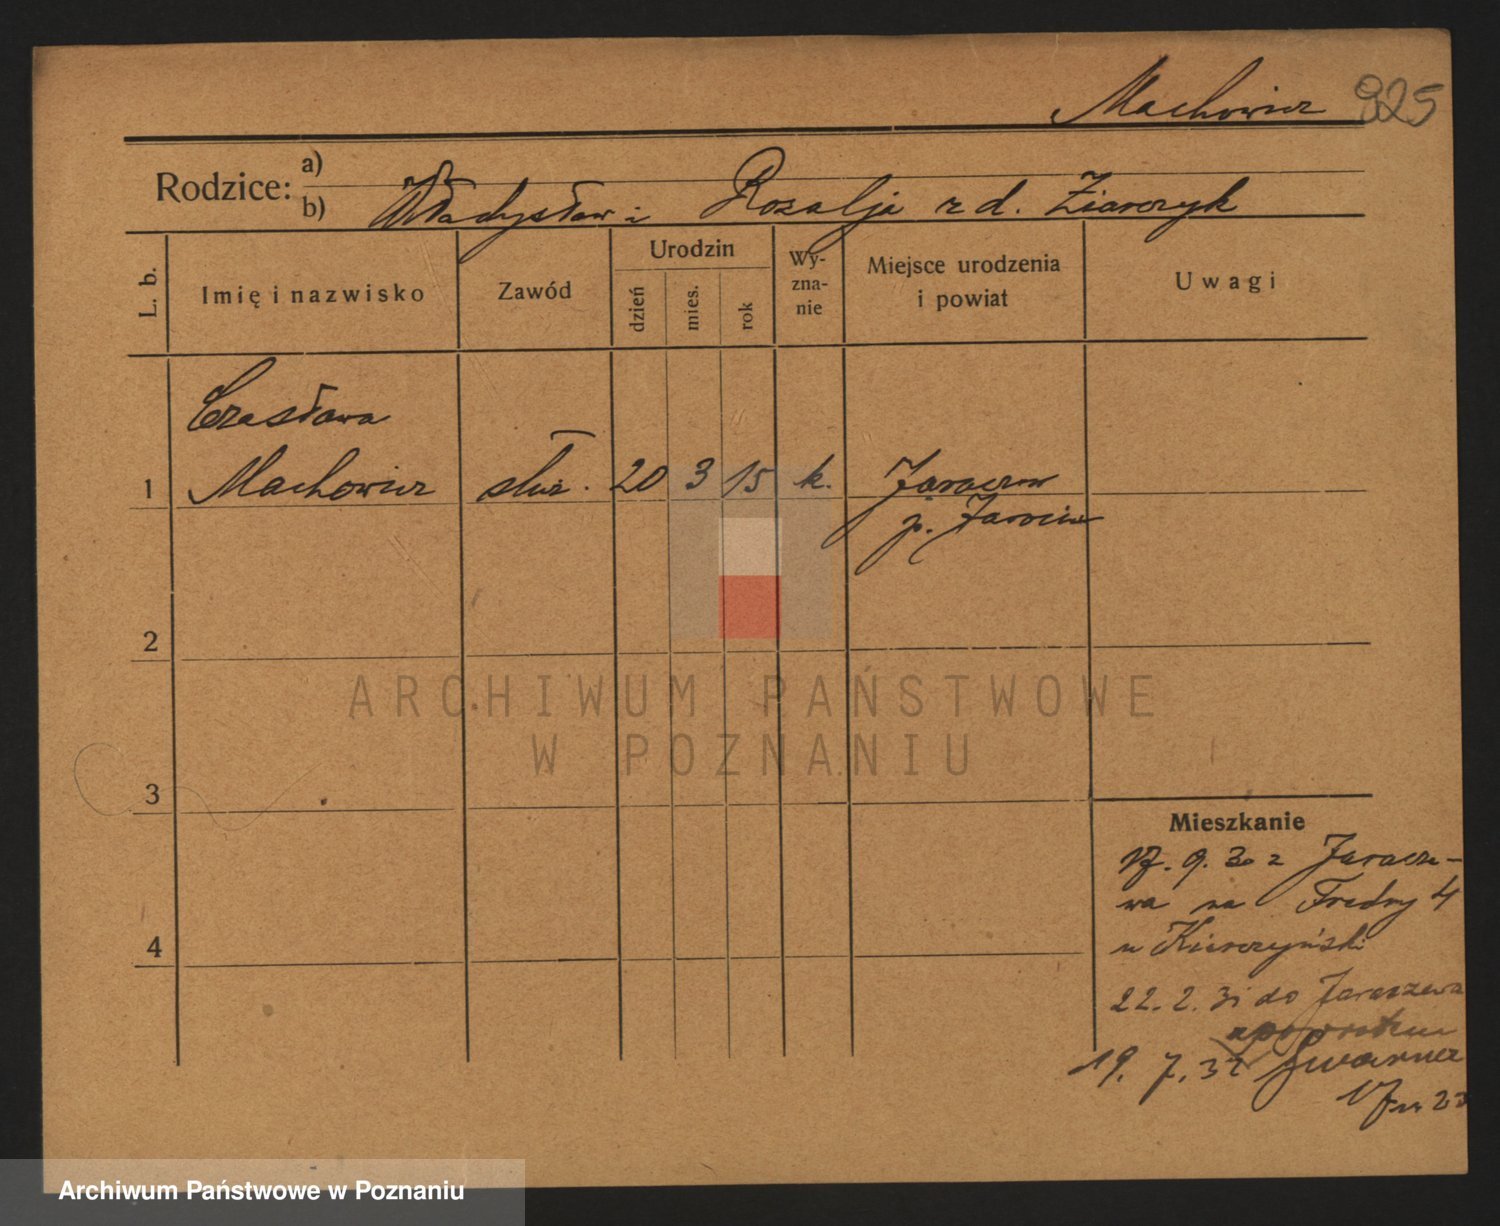 Machowicz 925
Rodzice:
a)
b) Władysław i Rozalja z d. Ziarczyk
L. b.
Imię i nazwisko
Zawód
Urodzin
dzień
mies.
rok
Wy-
zna-
nie
Miejsce urodzenia
i powiat
Uwagi
Czesława
1 Machowicz służ. 20 3 15 k. Jaraczew
p. Jarocin
2
3
4
Mieszkanie
17. 9. 30 z Jaracze-
wa na Fredry 4
u
22. 2. 31 do Jaraczewa
19. 7. 32
17
ARCHIWUM PAŃSTWOWE
W POZNANIU
Archiwum Państwowe w Poznaniu